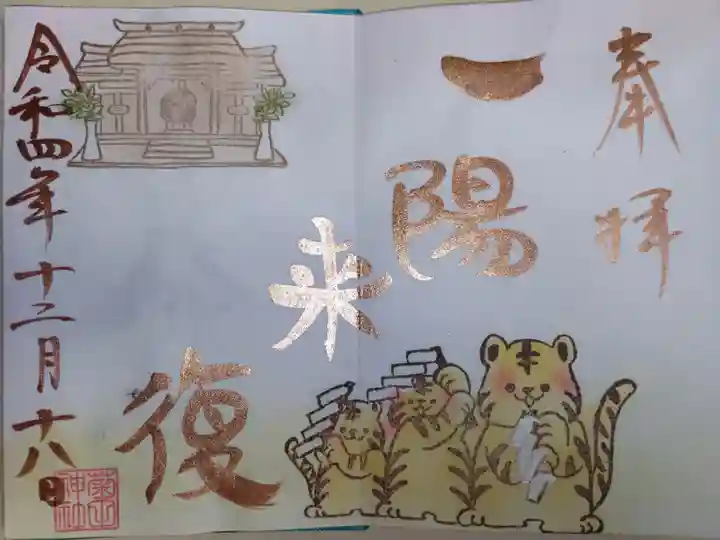 奉拝
一陽来復
令和四年十二月十八日
神社